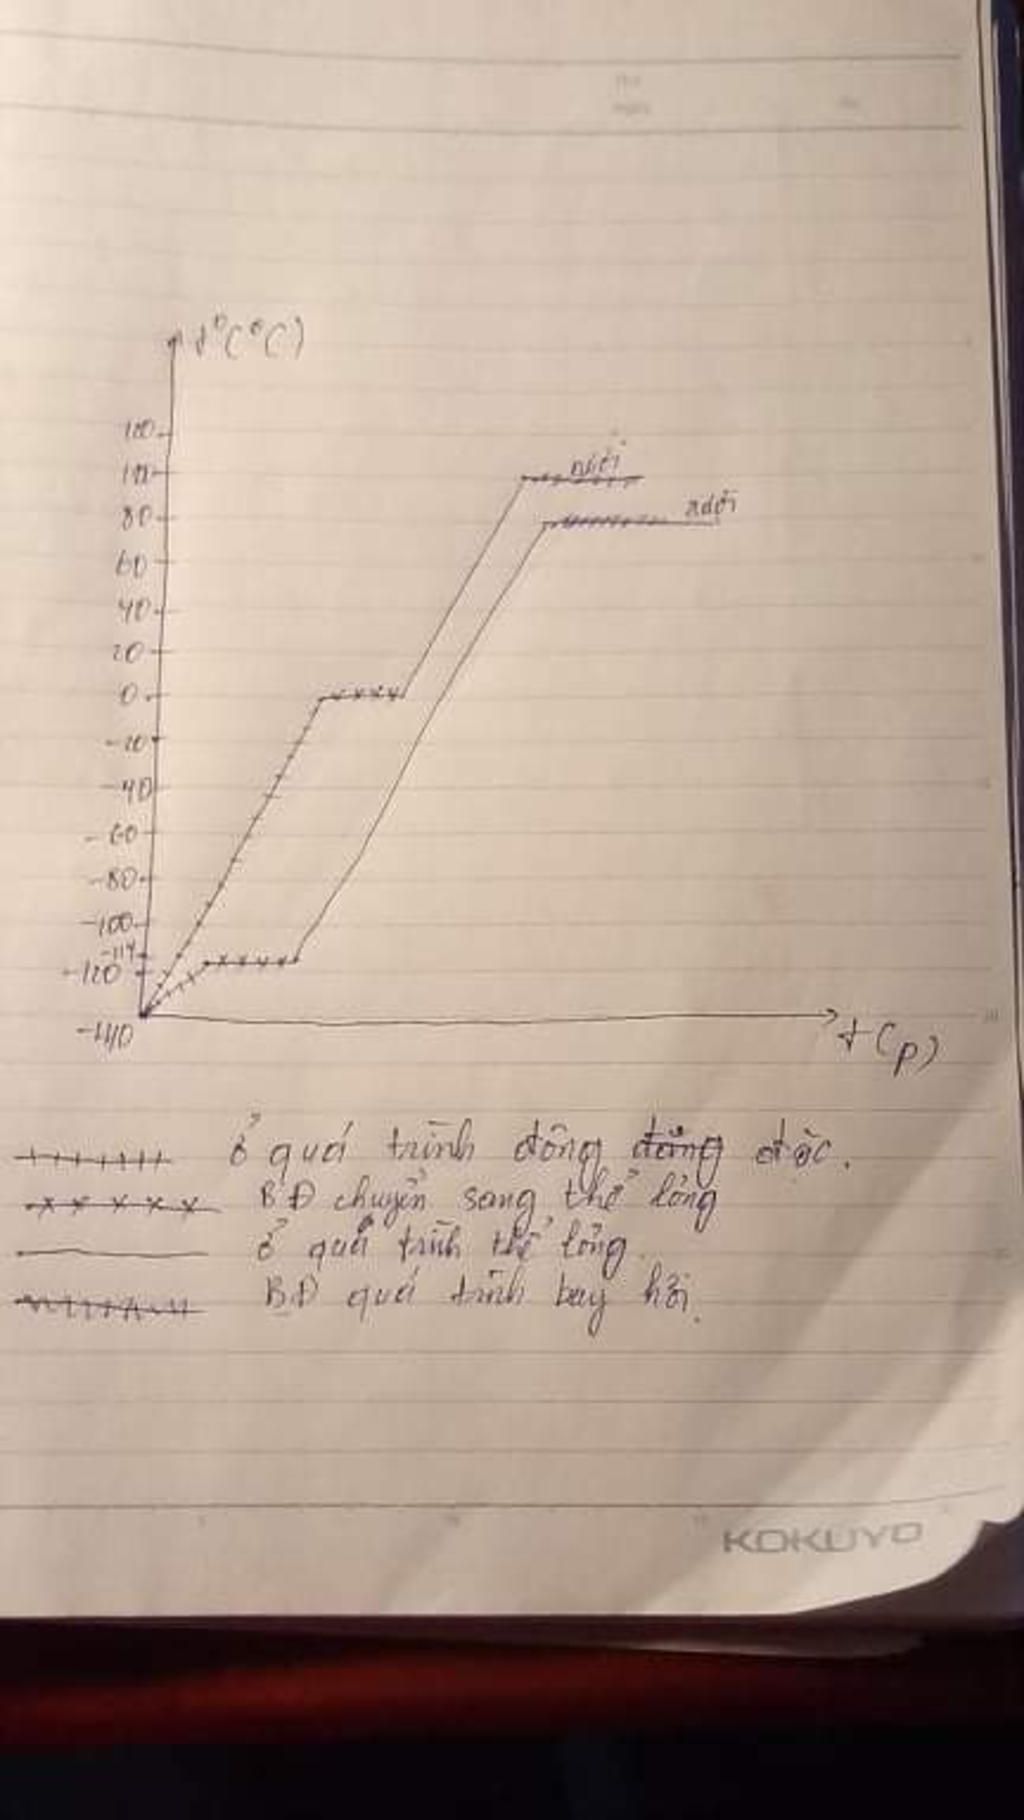 t°(°C)
120
100
nước
80
rượu
60
40
20
0
-20
-40
-60
-80
-100
-114
-120
-140
t(p)
ở quá trình đông đông đặc.
BĐ chuyển sang thể lỏng
ở quá trình thể lỏng.
BĐ quá trình bay hơi.
KOKUYO